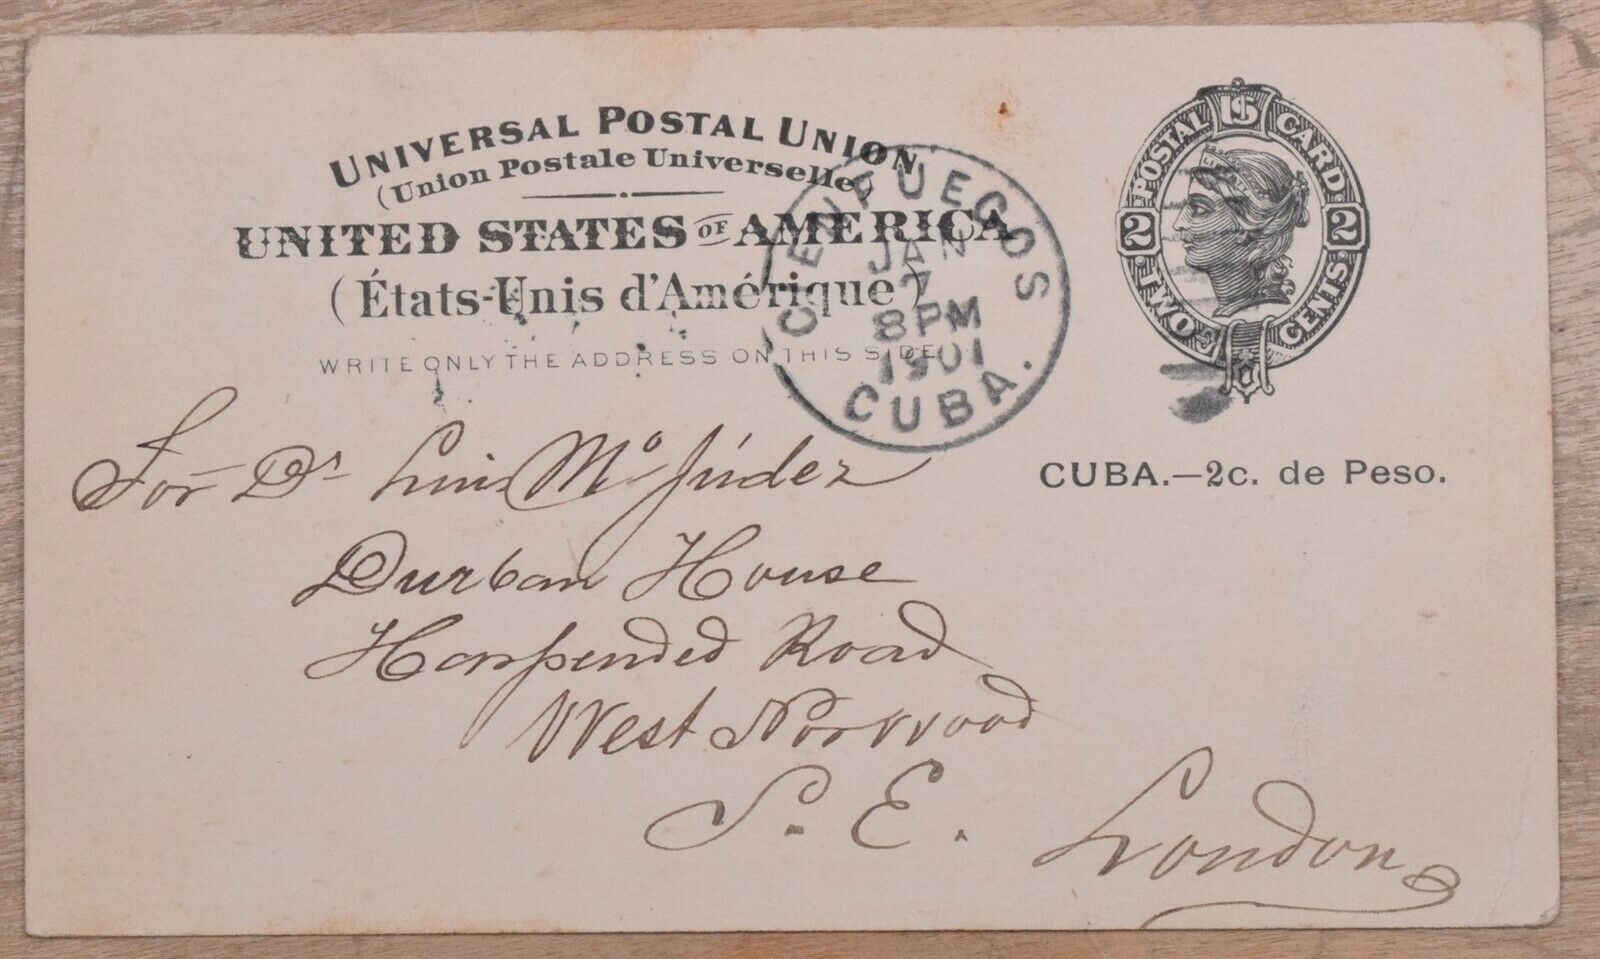 UNIVERSAL POSTAL UNION
(Union Postale Universelle)
UNITED STATES OF AMERICA
(États-Unis d'Amérique)
WRITE ONLY THE ADDRESS ON THIS SIDE
CIENFUEGOS
JAN
7
8 PM
1901
CUBA.
POSTAL US CARD
2 2
TWO CENTS
CUBA.—2c. de Peso.
For Dr Luis Mo Júdez
Durban House
Harpended Road
West Norwood
S. E. London